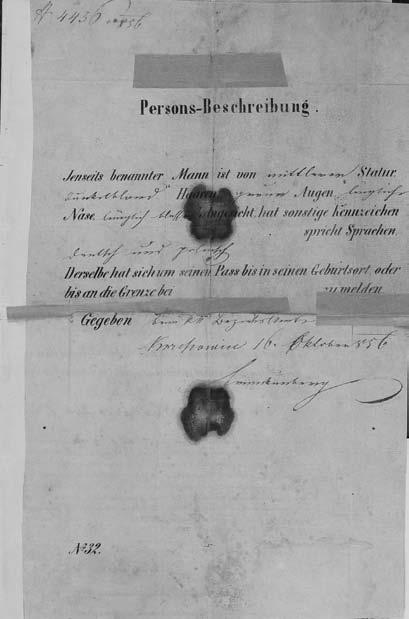 4436 856
Persons-Beschreibung.
Jenseits benannter Mann ist von mittlerer Statur,
dunkelblond Haaren, grauen Augen, länglicher
Nase, länglich Angesicht, hat sonstige Kennzeichen
spricht Sprachen,
deutsch und polnisch
Derselbe hat sich um seinen Pass bis in seinen Geburtsort, oder
bis an die Grenze bei zu melden
Gegeben
16. Oktober 856
№ 32.